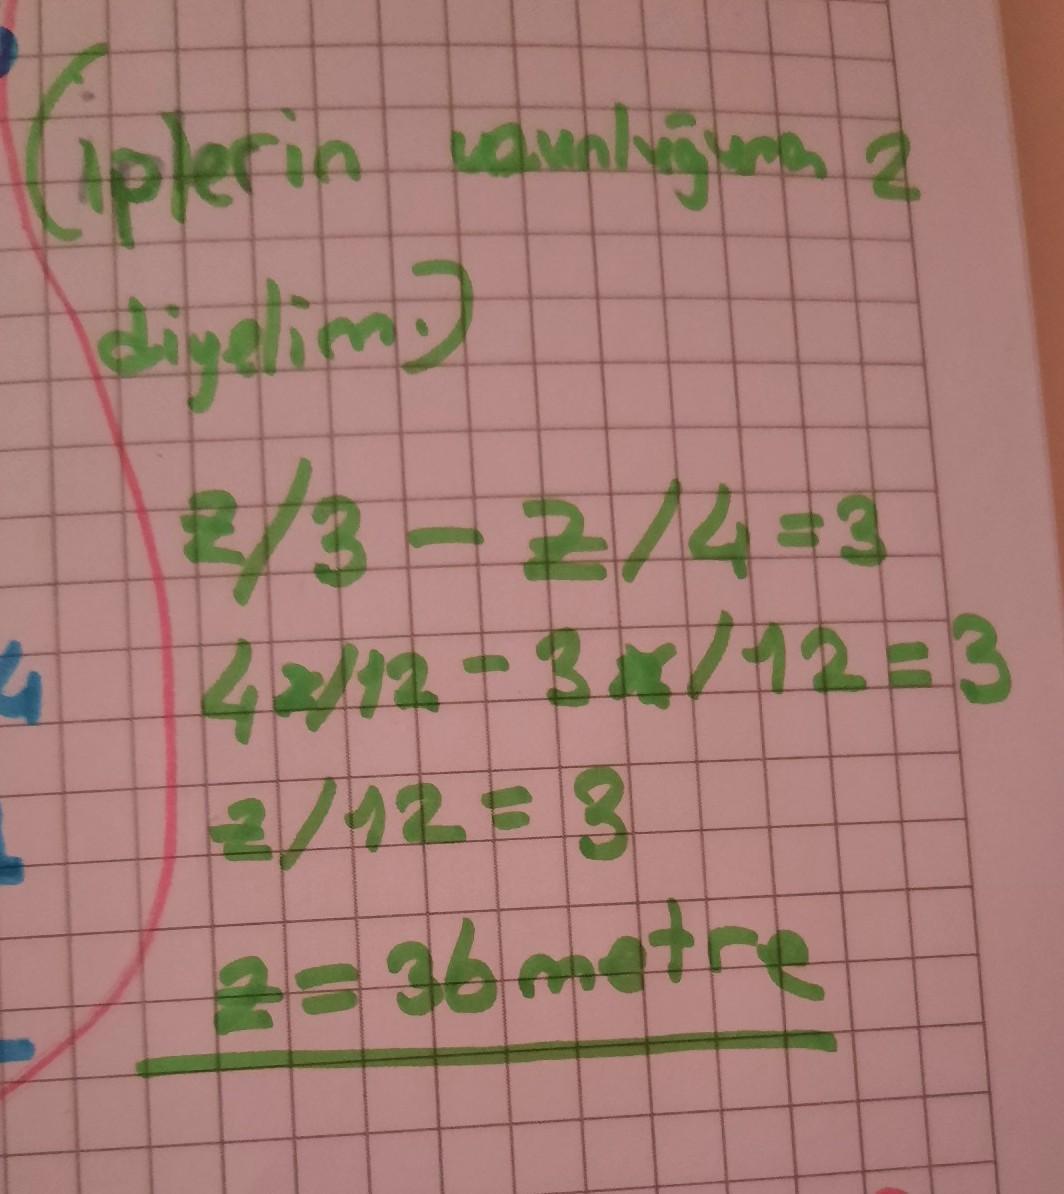 (iplerin uzunluğuna z
diyelim.)
z/3 - z/4 = 3
4z/12 - 3x/12 = 3
z/12 = 3
z = 36 metre
4
1